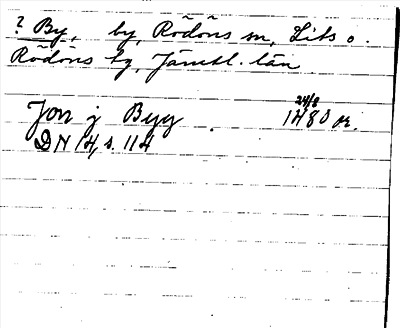 ? By, by, Rödöns sn, Lits o.
Rödöns tg, Jämtl. län
24/8
Jon j Byy 1480 or.
DN 14, s. 114